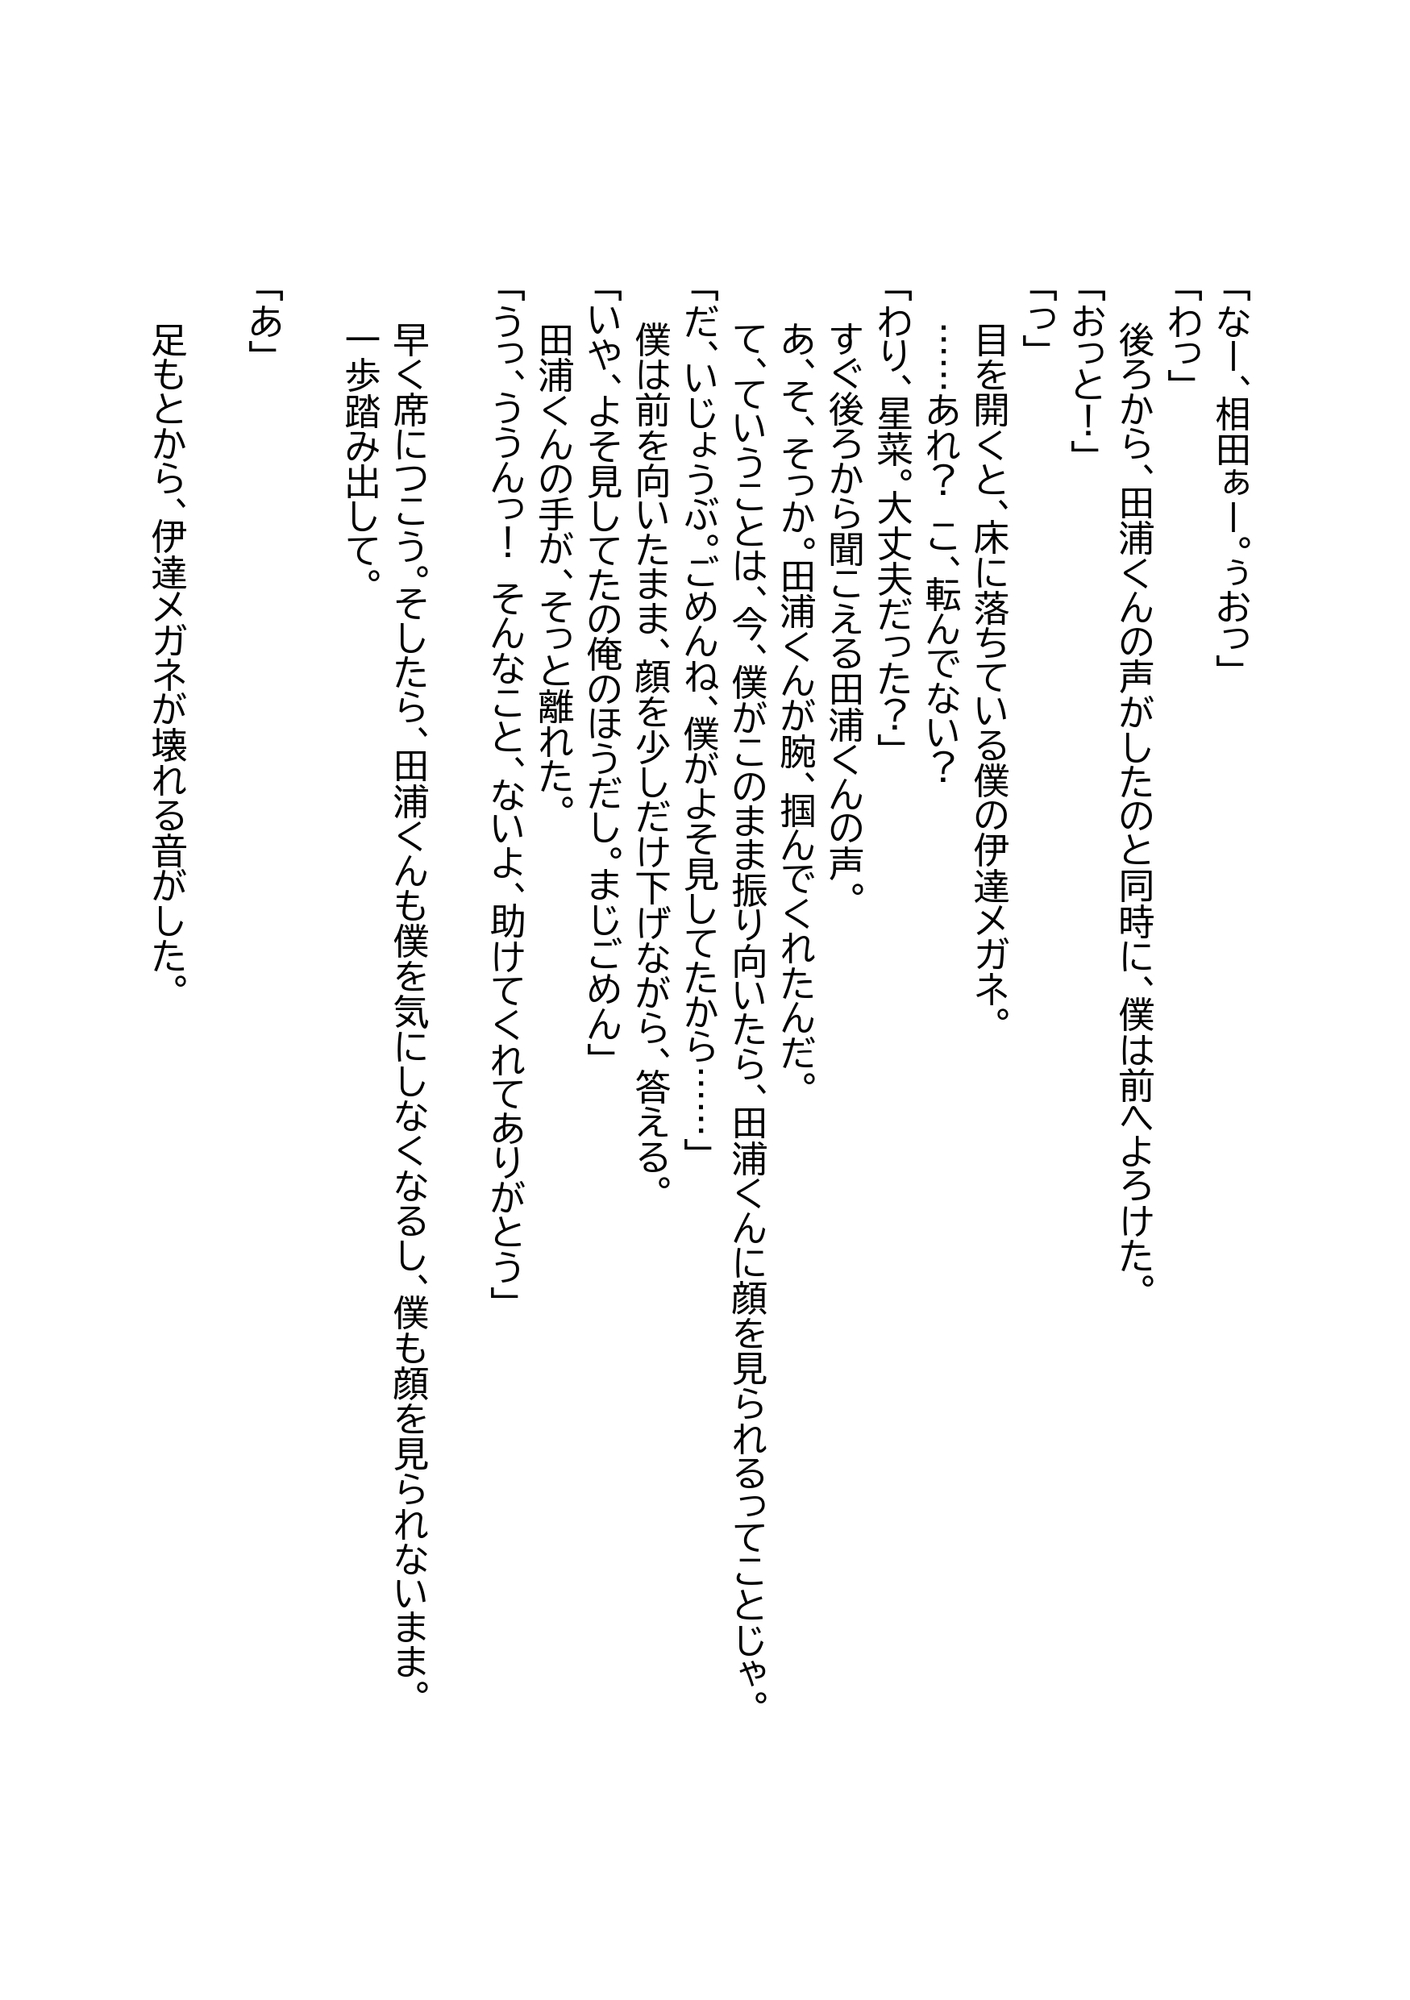 「なー、相田ぁー。ぅおっ」
「わっ」
　後ろから、田浦くんの声がしたのと同時に、僕は前へよろけた。
「おっと！」
「っ」
　目を開くと、床に落ちている僕の伊達メガネ。
　……あれ？　こ、転んでない？
「わり、星菜。大丈夫だった？」
　すぐ後ろから聞こえる田浦くんの声。
　あ、そ、そっか。田浦くんが腕、掴んでくれたんだ。
　て、ていうことは、今、僕がこのまま振り向いたら、田浦くんに顔を見られるってことじゃ。
「だ、いじょうぶ。ごめんね、僕がよそ見してたから……」
　僕は前を向いたまま、顔を少しだけ下げながら、答える。
「いや、よそ見してたの俺のほうだし。まじごめん」
　田浦くんの手が、そっと離れた。
「うっ、ううんっ！　そんなこと、ないよ、助けてくれてありがとう」
　早く席につこう。そしたら、田浦くんも僕を気にしなくなるし、僕も顔を見られないまま。
　一歩踏み出して。
「あ」
　足もとから、伊達メガネが壊れる音がした。